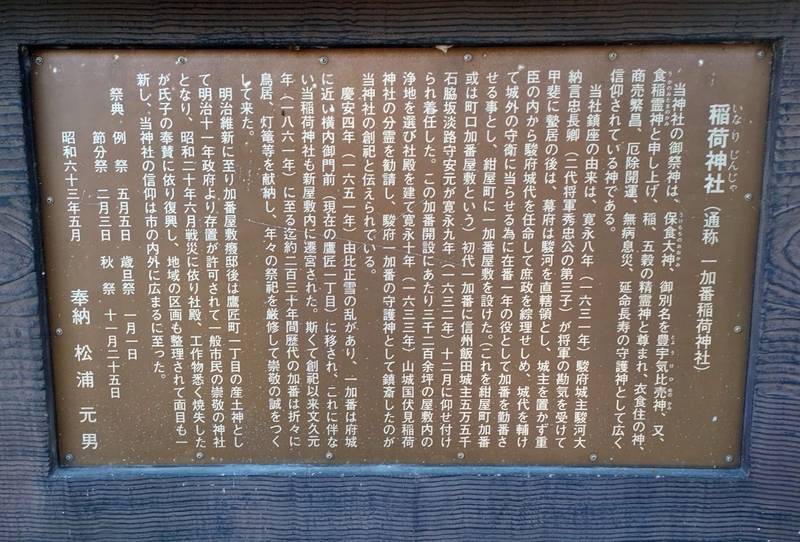 いなり じんじゃ
稲荷神社（通称 一加番稲荷神社）
当神社の御祭神は、保食大神、御別名を豊宇気比売神、又、
食稲霊神と申し上げ、稲、五穀の精霊神と尊まれ、衣食住の神、
商売繁昌、厄除開運、無病息災、延命長寿の守護神として広く
信仰されている神である。
当社鎮座の由来は、寛永八年（一六三一年）駿府城主駿河大
納言忠長卿（二代将軍秀忠公の第三子）が将軍の勘気を受けて
甲斐に蟄居の後は、幕府は駿河を直轄領とし、城主を置かず重
臣の内から駿府城代を任命して庶政を綜理せしめ、城代を輔け
て城外の守衛に当らせる為に在番一年の役として加番を勤番さ
せる事とし、紺屋町に一加番屋敷を設けた。（これを紺屋町加番
或は町口加番屋敷という）初代一加番に信州飯田城主五万五千
石脇坂淡路守安元が寛永九年（一六三二年）十二月に仰せ付け
られ着任した。この加番開設にあたり三千二百余坪の屋敷内の
浄地を選び社殿を建て寛永十年（一六三三年）山城国伏見稲荷
神社の分霊を勧請し、駿府一加番の守護神として鎮斎したのが
当神社の創祀と伝えられている。
慶安四年（一六五一年）由比正雪の乱があり、一加番は府城
に近い横内御門前（現在の鷹匠一丁目）に移され、これに伴な
い当稲荷神社も新屋敷内に遷宮された。斯くて創祀以来文久元
年（一八六一年）に至る迄約二百三十年間歴代の加番は折々に
鳥居、灯篭等を献納し、年々の祭祀を厳修して崇敬の誠をつく
して来た。
明治維新に至り加番屋敷癈邸後は鷹匠町一丁目の産土神とし
て明治十一年政府より存置が許可されて一般市民の崇敬の神社
となり、昭和二十年六月戦災に依り社殿、工作物悉く焼失した
が氏子の奉賛に依り復興し、地域の区画も整理されて面目も一
新し、当神社の信仰は市の内外に広まるに至った。
祭典 例 祭 五月五日 歳旦祭 一月一日
節分祭 二月三日 秋 祭 十一月二十五日
昭和六十三年五月
奉納 松浦 元男